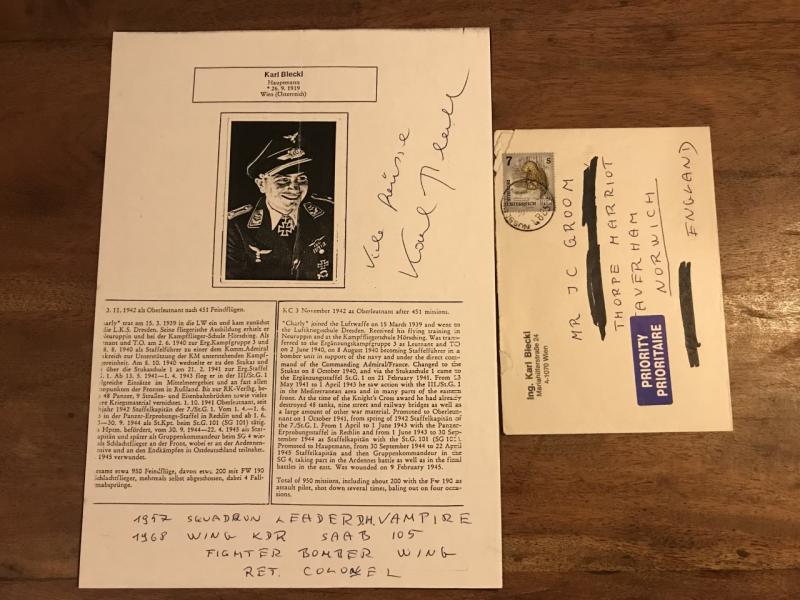 Karl Bleckl
Hauptmann
* 26. 9. 1919
Wien (Österreich)
Viele Grüsse
Karl Bleckl
3. 11. 1942 als Oberleutnant nach 451 Feindflügen.
arly" trat am 15. 3. 1939 in die LW ein und kam zunächst
die L.K.S. Dresden. Seine fliegerische Ausbildung erhielt er
Neuruppin und bei der Kampfflieger-Schule Hörsching. Als
nant und T.O. am 2. 6. 1940 zur Erg.Kampfgruppe 3 und
8. 1940 als Staffelführer zu einem dem Komm.Admiral
nkreich zur Unterstützung der KM unterstehenden Kampf-
verband. Am 8. 10. 1940 wechselte er zu den Stukas und
über die Stukaschule 1 am 21. 2. 1941 zur Erg.Staffel
1. Ab 13. 5. 1941—1. 4. 1943 flog er in der III./St.G. 1
lgreiche Einsätze im Mittelmeergebiet und an fast allen
npunkten der Frontes in Rußland. Bis zur RK-Verlhg. be-
48 Panzer, 9 Straßen- und Eisenbahnbrücken sowie vieles
re Kriegsmaterial vernichtet. 1. 10. 1941 Oberleutnant, seit
hjahr 1942 Staffelkapitän der 7./St.G. 1. Vom 1. 4.—1. 6.
3 in der Panzer-Erprobungs-Staffel in Rechlin und ab 1. 6.
3—30. 9. 1944 als St.Kpt. beim St.G. 101 (SG 101) tätig.
Hptm. befördert, vom 30. 9. 1944—22. 4. 1945 als Staf-
kapitän und später als Gruppenkommandeur beim SG 4 wie-
als Schlachtflieger an der Front, wobei er an der Ardennen-
nsive und an den Endkämpfen in Ostdeutschland teilnahm.
1945 verwundet.
esamt etwa 950 Feindflüge, davon etwa 200 mit FW 190
Schlachtflieger, mehrmals selbst abgeschossen, dabei 4 Fall-
mabsprünge.
KC 3 November 1942 as Oberleutnant after 451 missions.
"Charly" joined the Luftwaffe on 15 March 1939 and went to
the Luftkriegsschule Dresden. Received his flying training in
Neuruppin and at the Kampffliegerschule Hörsching. Was trans-
ferred to the Ergänzungskampfgruppe 3 as Leutnant and TO
on 2 June 1940, on 8 August 1940 becoming Staffelführer in a
bomber unit in support of the navy and under the direct com-
mand of the Commanding Admiral/France. Changed to the
Stukas on 8 October 1940, and via the Stukaschule 1 came to
the Ergänzungsstaffel St.G. 1 on 21 February 1941. From 13
May 1941 to 1 April 1943 he saw action with the III./St.G. 1
in the Mediterranean area and in many parts of the eastern
front. At the time of the Knight's Cross award he had already
destroyed 48 tanks, nine street and railway bridges as well as
a large amount of other war material. Promoted to Oberleut-
nant on 1 October 1941, from spring of 1942 Staffelkapitän of
the 7./St.G. 1. From 1 April to 1 June 1943 with the Panzer-
Erprobungsstaffel in Rechlin and from 1 June 1943 to 30 Sep-
tember 1944 as Staffelkapitän with the St.G. 101 (SG 101).
Promoted to Hauptmann, from 30 September 1944 to 22 April
1945 Staffelkapitän and then Gruppenkommandeur in the
SG 4, taking part in the Ardennes battle as well as in the final
battles in the east. Was wounded on 9 February 1945.
Total of 950 missions, including about 200 with the Fw 190 as
assault pilot, shot down several times, baling out on four occa-
sions.
1957 SQUADRON LEADER DH. VAMPIRE
1968 WING KDR SAAB 105
FIGHTER BOMBER WING
RET. COLONEL
7 S
MR JC GROOM
THORPE MARRIOT
TAVERHAM
NORWICH
ENGLAND
PRIORITY
PRIORITAIRE
Ing. Karl Bleckl
Mariahilferstraße 24
A-1070 Wien